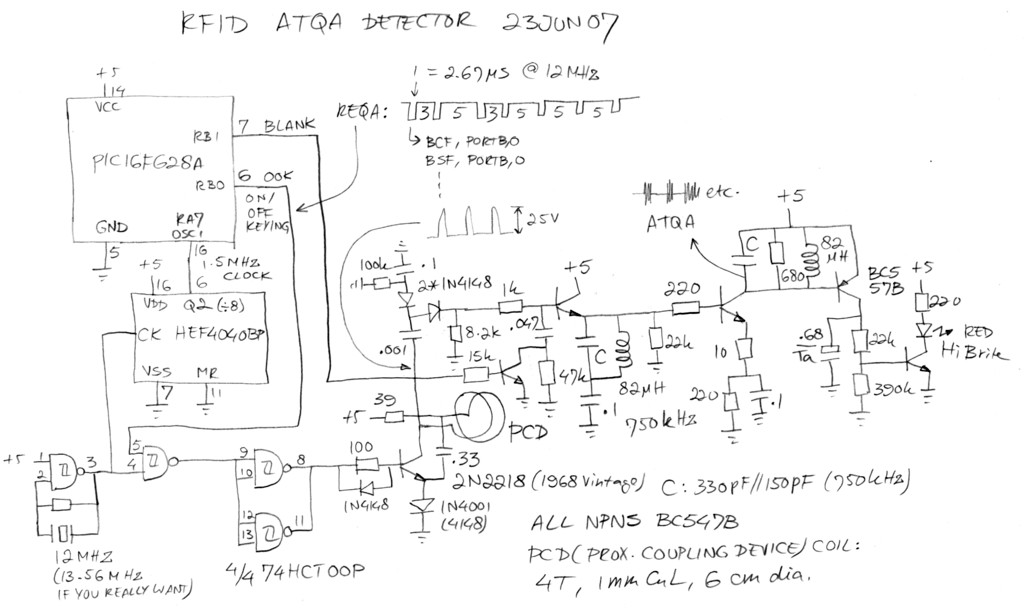 RFID ATQA DETECTOR 23JUN07
+5
14
VCC
PIC16F628A
RB1
7 BLANK
RB0
6 OOK
ON/
OFF
KEYING
GND
5
RA7
OSC1
16
1.5MHZ
CLOCK
REQA:
1 = 2.67µS @ 12MHZ
3 5 3 5 5 5
BCF, PORTB,0
BSF, PORTB,0
25V
etc.
ATQA
+5
16
6
VDD Q2 (÷8)
CK HEF4040BP
VSS MR
7 11
100k
.1
2*1N4148
.001
8.2k
1k
+5
.047
15k
47k
C
82µH
.1
750kHZ
22k
220
10
220
.1
+5
C
680
82
µH
BC5
57B
+5
220
RED
HiBrite
.68
Ta
22k
390k
39
+5
PCD
.33
+5
1
2
3
5
4
9
10
8
12
13
11
100
1N4148
2N2218 (1968 vintage)
1N4001
(4148)
12MHZ
(13.56MHZ
IF YOU REALLY WANT)
4/4 74HCT00P
C: 330pF//150pF (750kHZ)
ALL NPNS BC547B
PCD (PROX. COUPLING DEVICE) COIL:
4T, 1mm CuL, 6 cm dia.